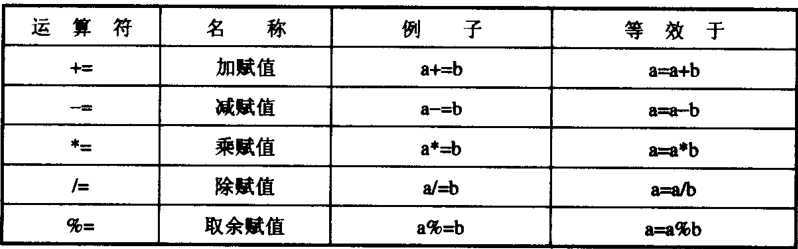 运 算 符 名 称 例 子 等 效 于
+= 加赋值 a+=b a=a+b
-= 减赋值 a-=b a=a-b
*= 乘赋值 a*=b a=a*b
/= 除赋值 a/=b a=a/b
%= 取余赋值 a%=b a=a%b